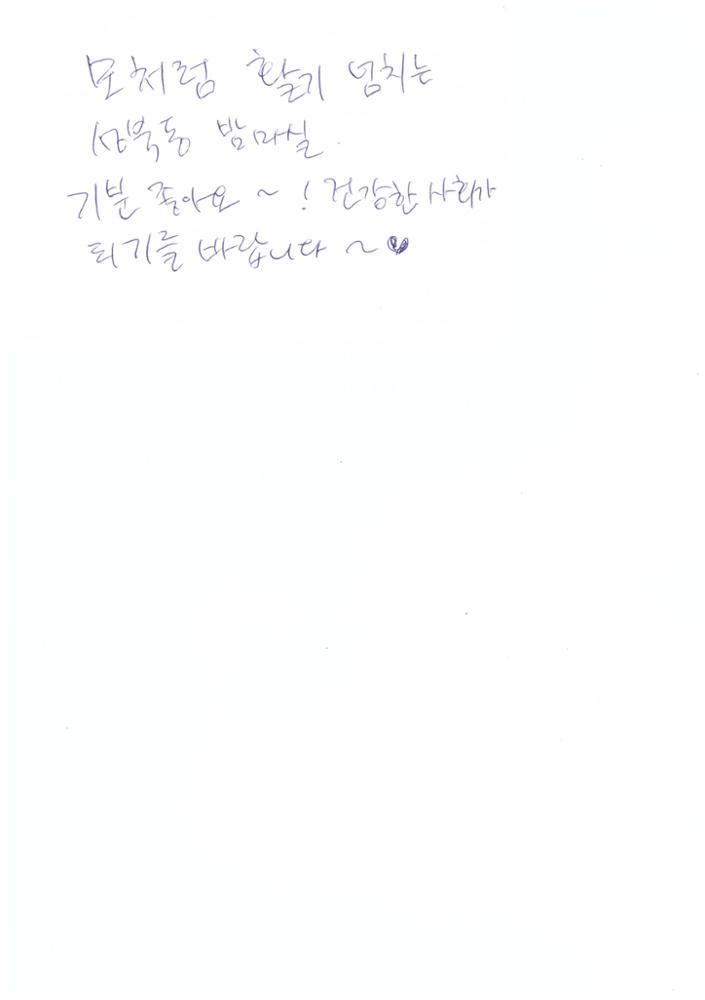 모처럼 활기 넘치는
성북동 밤마실.
기분 좋아요 ~ ! 건강한 사회가
되기를 바랍니다 ~ ♥